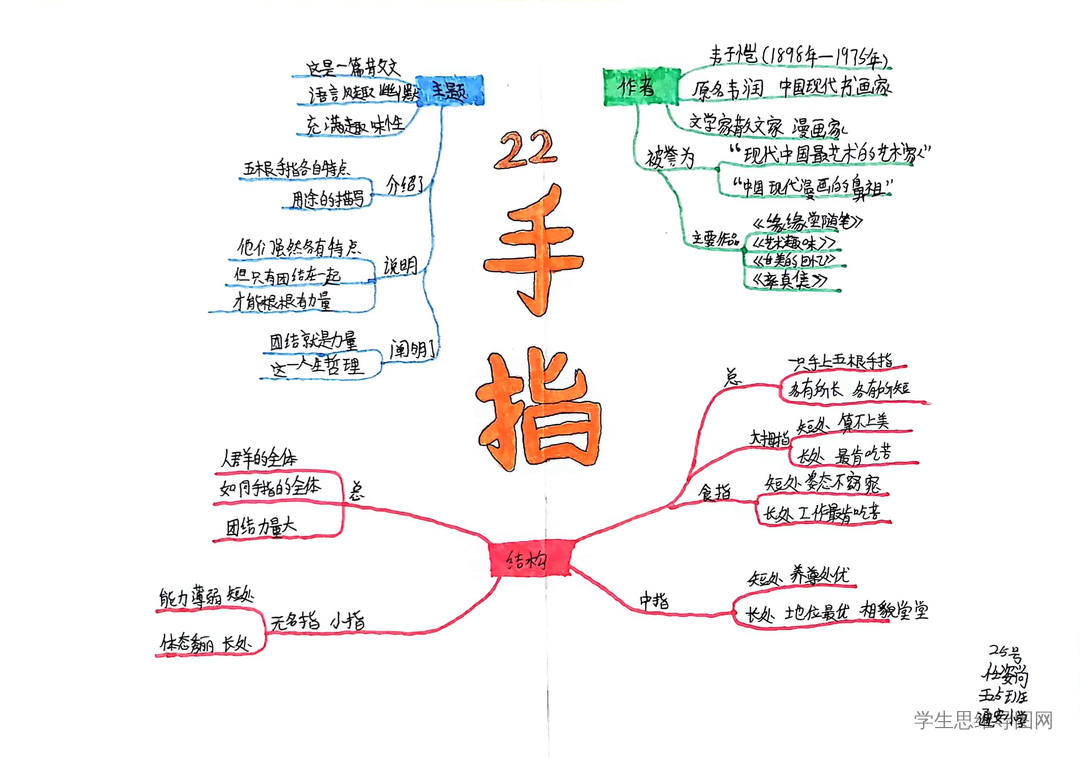 22
手指
主题
这是一篇散文
语言风趣 幽默
充满趣味性
介绍了
五根手指各自特点
用途的描写
说明
他们虽然各有特点
但只有团结在一起
才能根根有力量
阐明了
团结就是力量
这一人生哲理
作者
(1898年—1975年)
原名丰润 中国现代书画家
文学家散文家 漫画家
被誉为
“现代中国最艺术的艺术家”
“中国现代漫画的鼻祖”
主要作品
《缘缘堂随笔》
《艺术趣味》
《率真集》
结构
总
一只手上五根手指
各有所长 各有所短
大拇指
短处 算不上美
长处 最肯吃苦
食指
短处 姿态不窈窕
长处 工作最肯吃苦
中指
短处 养尊处优
长处 地位最优 相貌堂堂
无名指 小指
能力薄弱 短处
体态 长处
总
人群的全体
如同手指的全体
团结力量大
25号
五25班
通安小学
学生思维导图网